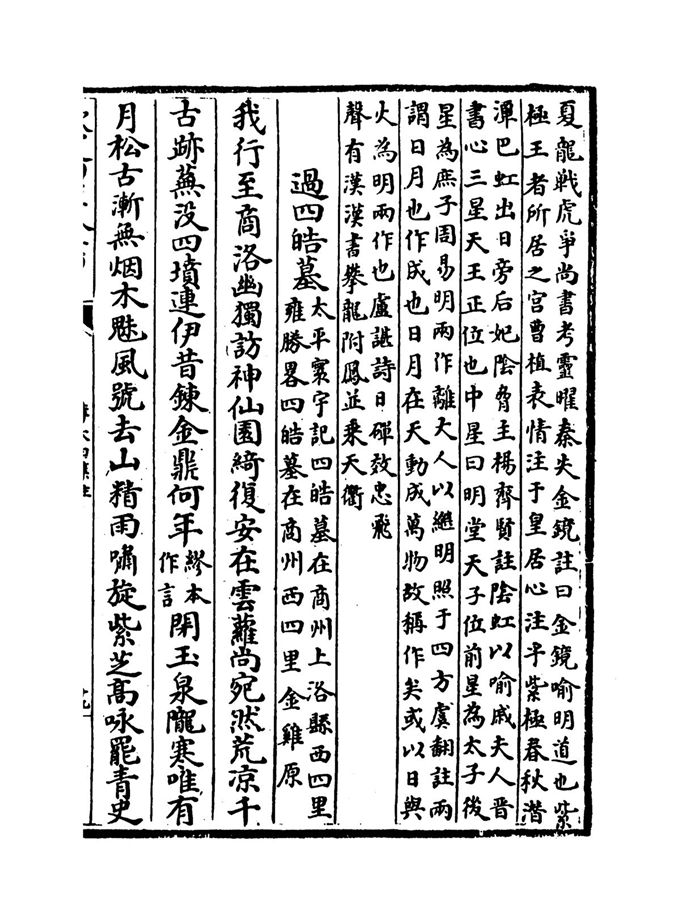 夏龍戰虎爭尚書考靈曜秦失金鏡註曰金鏡喻明道也紫
極王者所居之宮曹植表情注于皇居心注乎紫極春秋潛
潭巴虹出日旁后妃陰脅主楊齊賢註陰虹以喻戚夫人晉
書心三星天王正位也中星曰明堂天子位前星為太子後
星為庶子周易明兩作離大人以繼明照于四方虞翻註兩
謂日月也作成也日月在天動成萬物故稱作矣或以日與
火為明兩作也盧諶詩曰磾效忠飛
聲有漢漢書攀龍附鳳並乘天衢
過四皓墓太平寰宇記四皓墓在商州上洛縣西四里
雍勝畧四皓墓在商州西四里金雞原
我行至商洛幽獨訪神仙園綺復安在雲蘿尚宛然荒凉千
古跡蕪没四墳連伊昔鍊金鼎何年繆本作言閉玉泉隴寒唯有
月松古漸無烟木魅風號去山精雨嘯旋紫芝髙咏罷青史